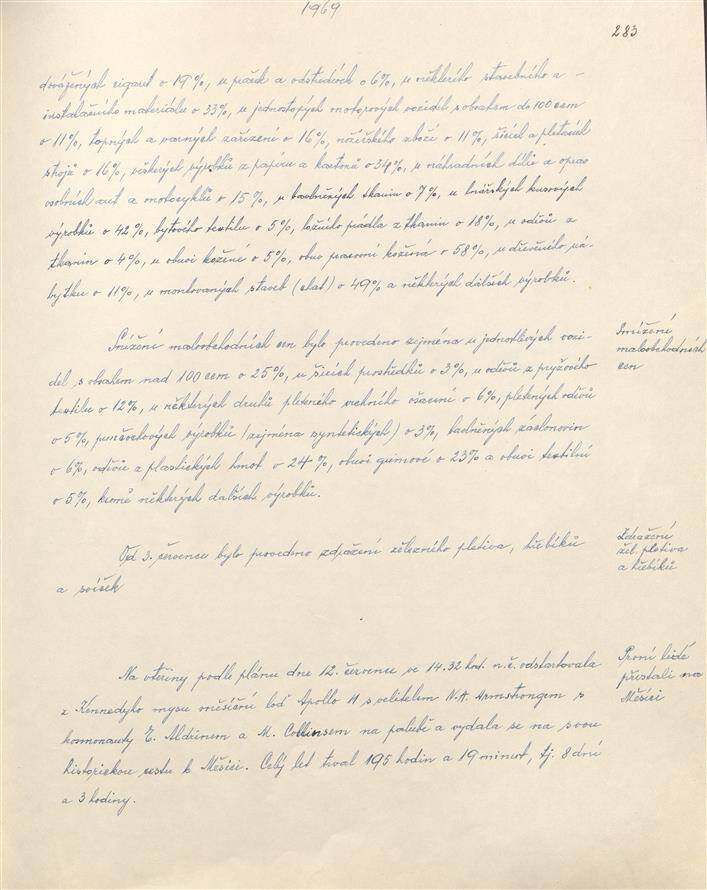 1969
283
dovážených cigaret o 19%, u praček a odstředivek o 6%, u některého stavebního a -
instalačního materiálu o 33%, u jednostopých motorových vozidel s obsahem do 100 ccm
o 11%, topných a varných zařízení o 16%, nožířského zboží o 11%, šicích a pletacích
strojů o 16%, veškerých výrobků z papíru a kartonů o 34%, u náhradních dílů a oprav
osobních aut a motocyklů o 15%, u bavlněných tkanin o 7%, u lnářských kusových
výrobků o 42%, bytového textilu o 5%, ložního prádla z tkanin o 18%, u oděvů z
tkanin o 4%, u obuvi kožené o 5%, obuv pracovní kožená o 58%, u dřevěného ná-
bytku o 11%, u montovaných staveb (chat) o 49% a některých dalších výrobků.
Snížení maloobchodních cen bylo provedeno zejména u jednotlivých vozi-
del s obsahem nad 100 ccm o 25%, u šicích prostředků o 3%, u oděvů z pryžového
textilu o 12%, u některých druhů pleteného vrchního ošacení o 6%, pletených oděvů
o 5%, punčochových výrobků /zejména syntetických) o 3%, bavlněných záclonovin
o 6%, oděvů z plastických hmot o 24%, obuvi gumové o 23% a obuvi textilní
o 5%, kromě některých dalších výrobků.
Snížení
maloobchodních
cen
Od 3. července bylo provedeno zdražení železného pletiva, hřebíků
a svíček
Zdražení
žel. pletiva
a hřebíků
Na vteřiny podle plánu dne 12. července ve 14.32 hod. n.č. odstartovala
z Kennedyho mysu měsíční loď Apollo 11 s velitelem N.A. Armstrongem s
kosmonauty E. Aldrinem a M. Collinsem na palubě a vydala se na svou
historickou cestu k Měsíci. Celý let trval 195 hodin a 19 minut, tj. 8 dní
a 3 hodiny.
První lidé
přistáli na
Měsíci